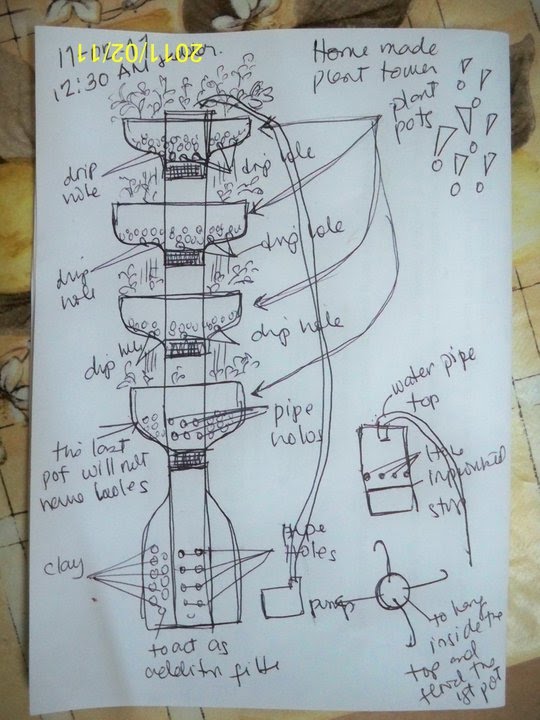 2011/02/11
12:30 AM
Home made
plant tower
plant
pots
drip
hole
drip hole
drip
hole
drip hole
drip
drip hole
the last
pot will not
have holes
pipe
holes
water pipe
top
clay
pipe
holes
pump
to act as
to hang
inside the
top and
the
1st pot